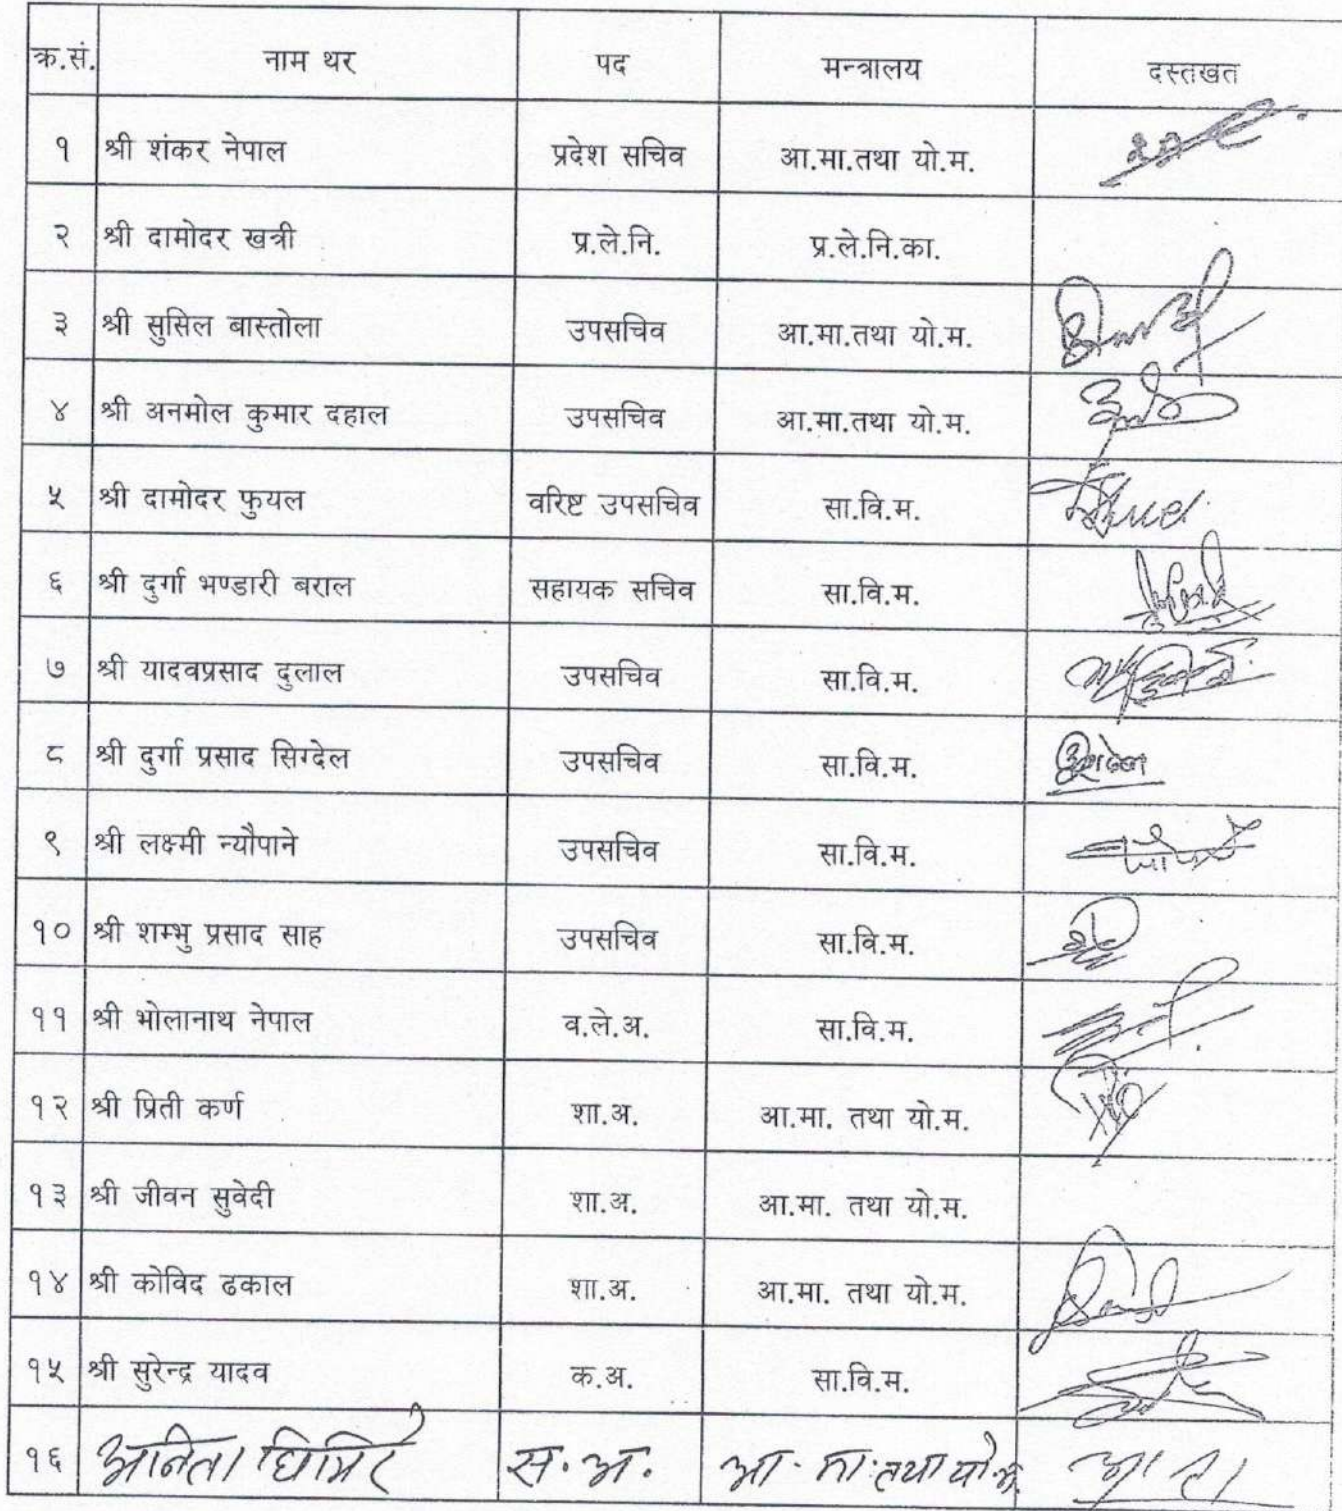 क्र.सं. नाम थर पद मन्त्रालय दस्तखत
१ श्री शंकर नेपाल प्रदेश सचिव आ.मा.तथा यो.म.
२ श्री दामोदर खत्री प्र.ले.नि. प्र.ले.नि.का.
३ श्री सुसिल बास्तोला उपसचिव आ.मा.तथा यो.म.
४ श्री अनमोल कुमार दहाल उपसचिव आ.मा.तथा यो.म.
५ श्री दामोदर फुयल वरिष्ट उपसचिव सा.वि.म.
६ श्री दुर्गा भण्डारी बराल सहायक सचिव सा.वि.म.
७ श्री यादवप्रसाद दुलाल उपसचिव सा.वि.म.
८ श्री दुर्गा प्रसाद सिग्देल उपसचिव सा.वि.म.
९ श्री लक्ष्मी न्यौपाने उपसचिव सा.वि.म.
१० श्री शम्भु प्रसाद साह उपसचिव सा.वि.म.
११ श्री भोलानाथ नेपाल व.ले.अ. सा.वि.म.
१२ श्री प्रिती कर्ण शा.अ. आ.मा. तथा यो.म.
१३ श्री जीवन सुवेदी शा.अ. आ.मा. तथा यो.म.
१४ श्री कोविद ढकाल शा.अ. आ.मा. तथा यो.म.
१५ श्री सुरेन्द्र यादव क.अ. सा.वि.म.
१६ अनिता घिमिरे स.अ. आ.मा.तथा यो.म.